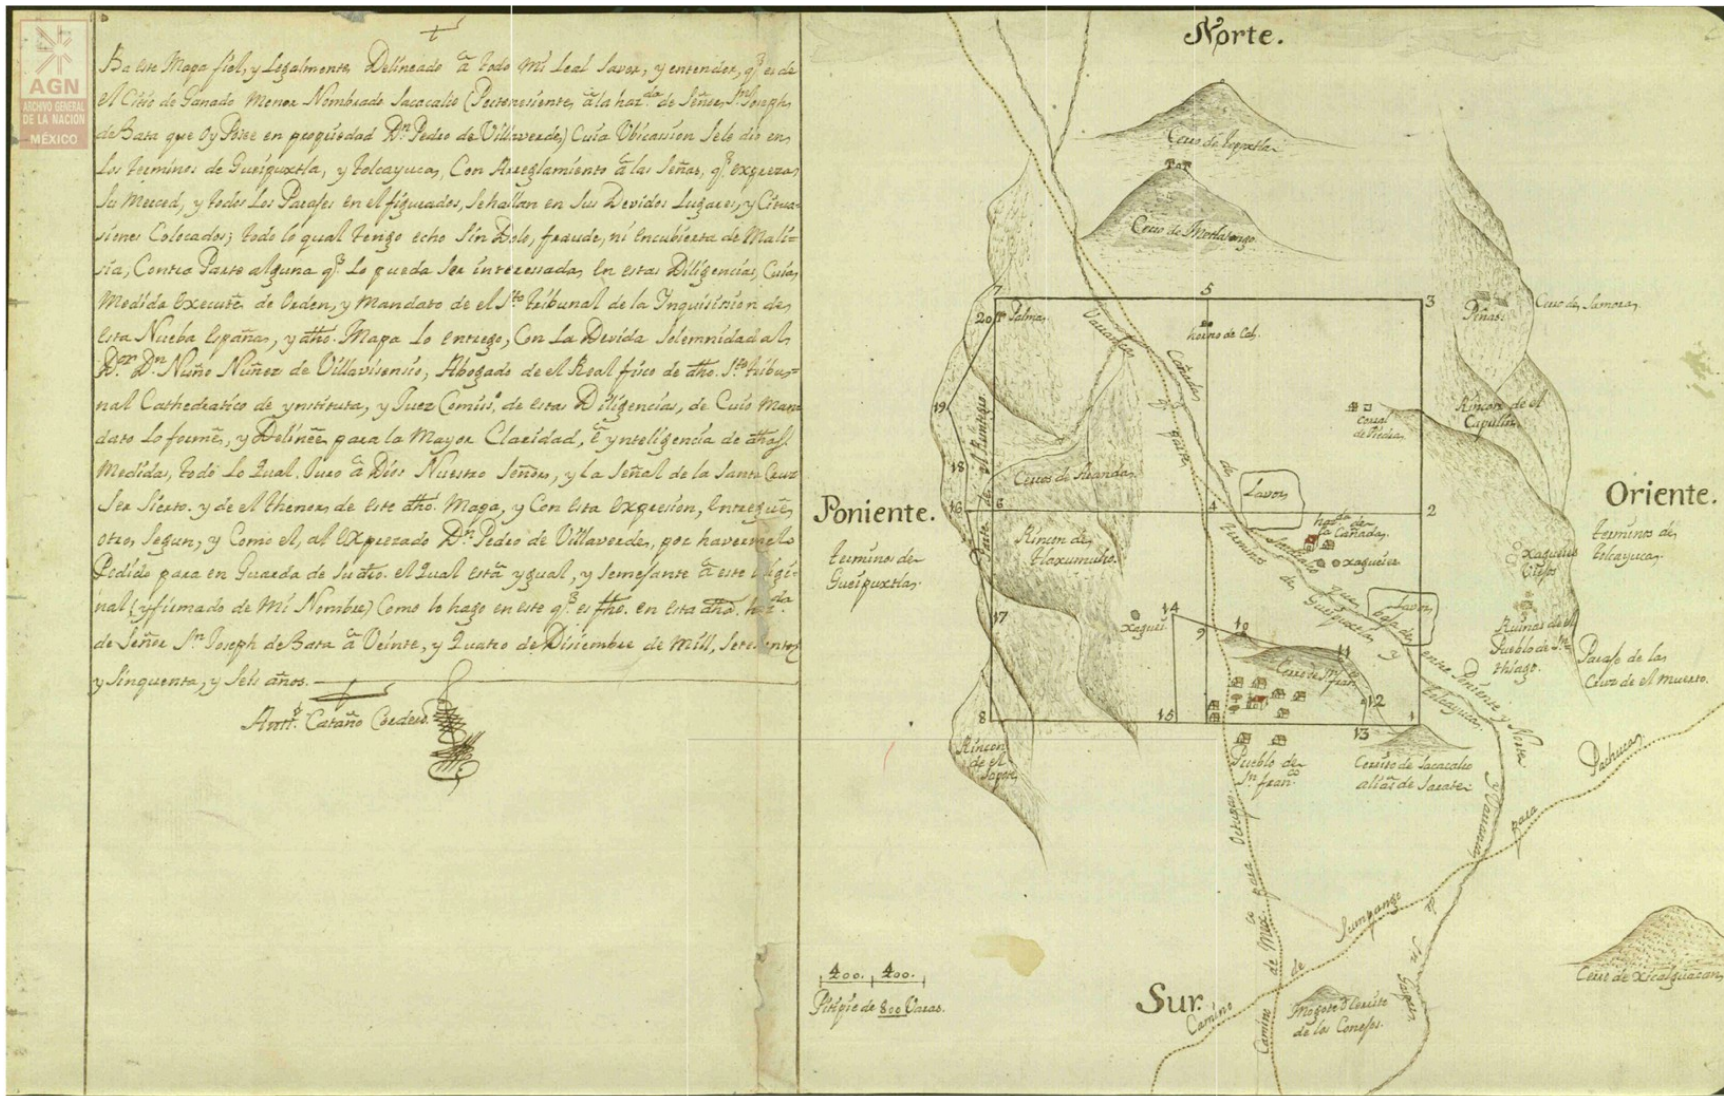 AGN
ARCHIVO GENERAL
DE LA NACIÓN
MÉXICO
Ba este Mapa fiel, y Legalmente Delineado â todo mi Leal Saver, y entender, q.e es de
el Citio de Ganado Menor Nombrado Sacacalco (Pertenesiente â la haz.da de Señor S.n Joseph
de Bata que Oy Posee en propiedad D.n Pedro de Villaverde) Cuia Ubicacion Sele dio en
Los terminos de Gueipuxtla, y tolcayuca, Con Arreglamiento â las Señas, q.e expreza
Su Merced, y todos Los Parajes en el figurados, Sehallan en Sus Devidos Lugares, y Citua-
siones Colocados; todo lo qual tengo echo Sin Dolo, fraude, ni encubierta de Mali-
sia, Contra Parte alguna q.e Lo pueda Ser interessada, En estas Diligencias, Cuia
Medida Executê de Orden, y Mandato de el S.to tribunal de la Ynquisision de
Esta Nueba España, y dho. Mapa Lo entrego, Con La Devida Solemnidad al
D.or D.n Nuño Nuñez de Villavisensio, Abogado de el Real fisco de dho. S.to tribu-
nal Cathedratico de ynstituta, y Juez Comiss.o de estas Diligencias, de Cuio Man-
dato Lo formê, y Delineê para la Mayor Claridad, ê ynteligencia de dhas
Medidas, todo Lo Qual Juro â Dios Nuestro Señor, y la Señal de la Santa Cruz
Ser Sierto. y de el thenor de este dho. Mapa, y Con esta Expresion, Entreguê
otro, Segun, y Como el, al Exprezado D.n Pedro de Villaverde, por havermelo
Pedido para en Guarda de Su dro. el Qual estâ ygual, y Semejante â este origi-
nal (y firmado de Mi Nombre) Como lo hago en este q.e es fho. en esta dha. haz.da
de Señor S.n Joseph de Bata â Veinte, y Quatro de Disiembre de Mill, Setesientos
y Sinquenta, y Seis años.
Ant.o Cataño Cordero
Norte.
Cerro de
Cerro de
7
5
3
20
Palma
horno de Cal.
Barranca
Cañada
Peñas
Cerro de Samora
19
corral
de Piedra
Rincon de el
Capulin
18
Cerros de Aranda
Labor
Poniente.
Oriente.
16
6
4
2
terminos de
Gueipuxtla.
Rincon de
tlaxumulco
haz.da de
la Cañada
xagueies
terminos de
tolcayuca
xagueies
Viejos
Labor
17
xaguei
14
9
10
11
Ruinas de el
Pueblo de S.n
thiago.
Paraje de las
Cruz de el Muerto.
Cerro de S.n
fran.co
8
15
12
13
1
Rincon
de el
Sapote
Pueblo de
S.n fran.co
Cerrito de Sacacalco
alias de Sacate
Camino de Mex.co para Octupa
Camino de Sumpango para Pachuca
400. 400.
Pitipie de 800 Varas.
Sur.
Mogote ô Cerrito
de los Conejos.
Cerro de Xicalguacan